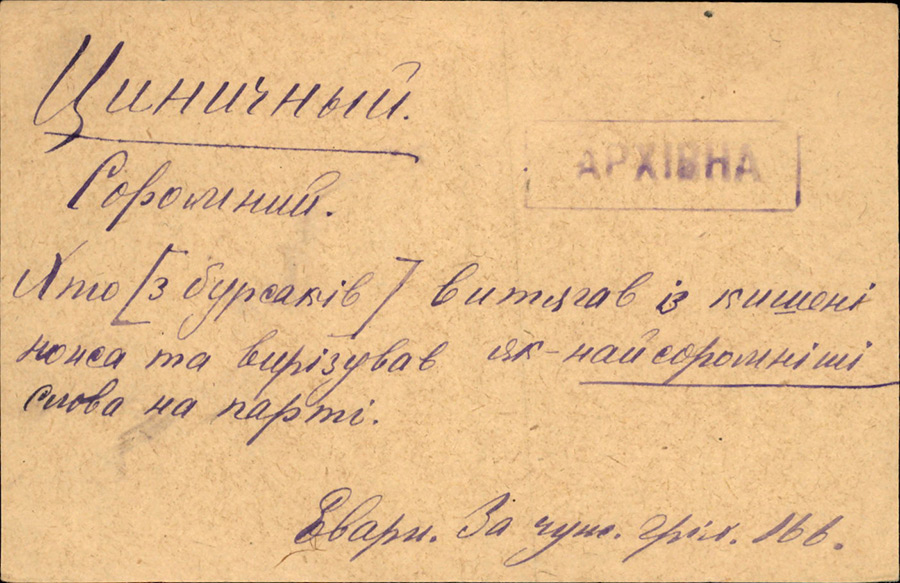 Циничный.
АРХІВНА
Соромний.
Хто [з бурсаків] витягав із кишені
ножа та вирізував як-найсоромніші
слова на парті.
Эварн. За чуж. гріх. 166.